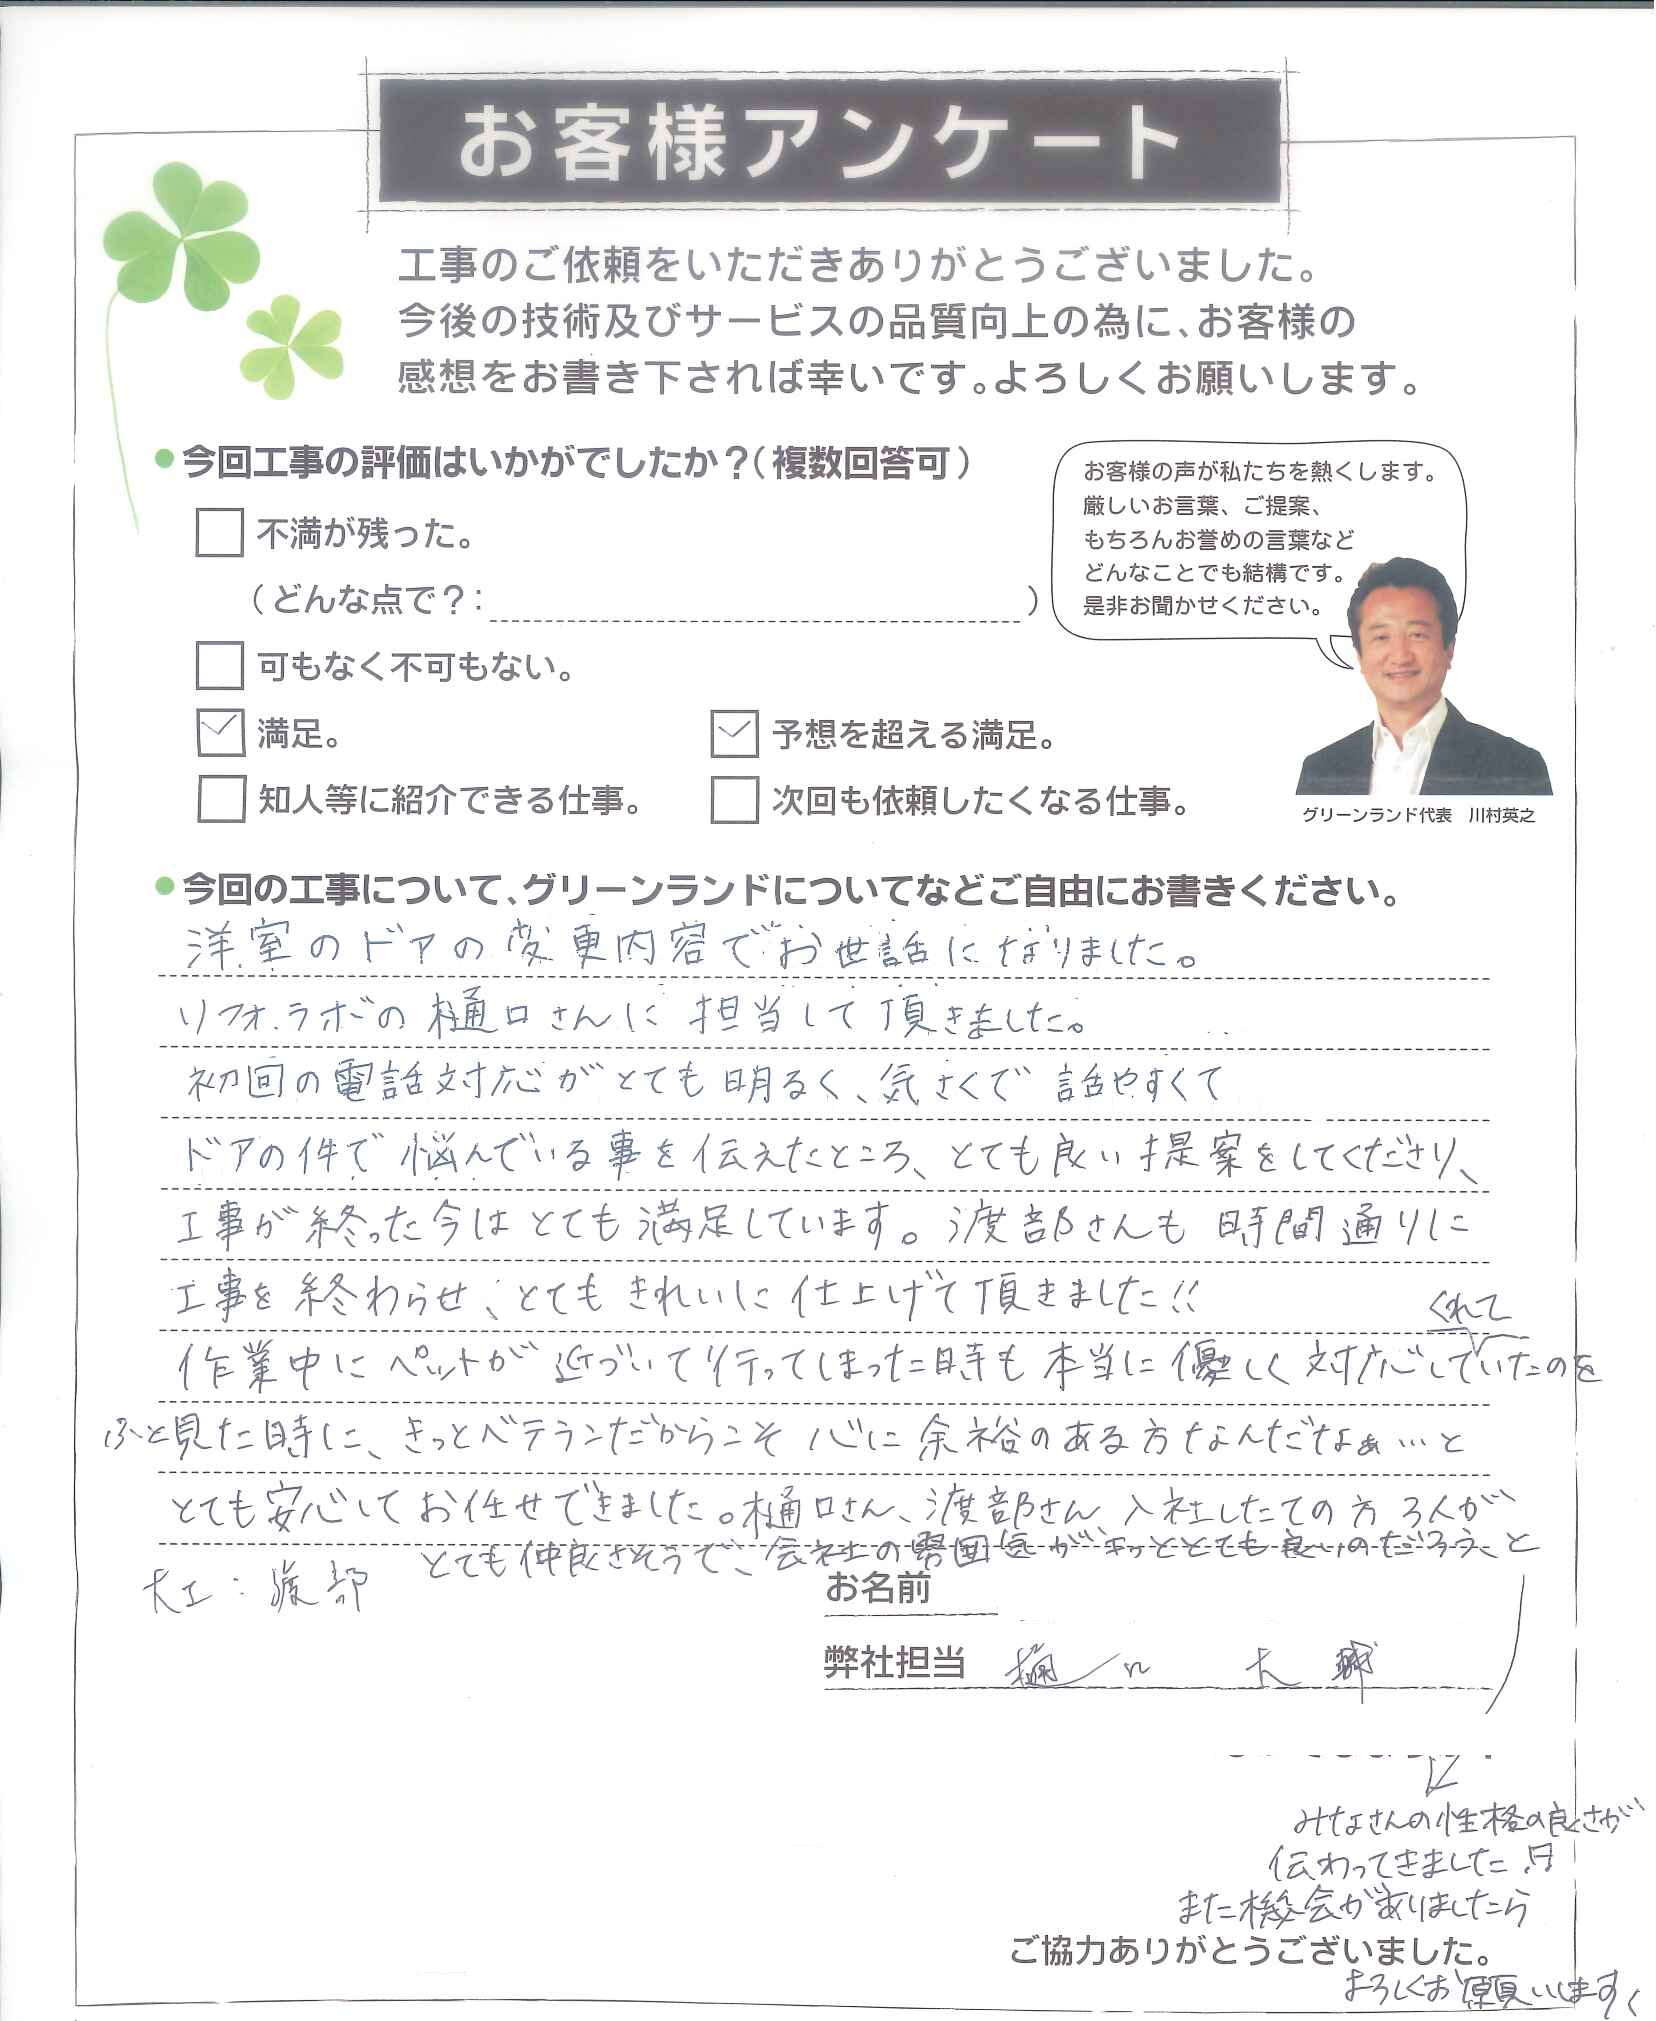 お客様アンケート
工事のご依頼をいただきありがとうございました。
今後の技術及びサービスの品質向上の為に、お客様の
感想をお書き下されば幸いです。よろしくお願いします。
今回工事の評価はいかがでしたか？（複数回答可）
不満が残った。
（どんな点で？：　）
可もなく不可もない。
満足。
予想を超える満足。
知人等に紹介できる仕事。
次回も依頼したくなる仕事。
お客様の声が私たちを熱くします。
厳しいお言葉、ご提案、
もちろんお誉めの言葉など
どんなことでも結構です。
是非お聞かせください。
グリーンランド代表　川村英之
今回の工事について、グリーンランドについてなどご自由にお書きください。
洋室のドアの変更内容でお世話になりました。
リフォ.ラボの樋口さんに担当して頂きました。
初回の電話対応がとても明るく、気さくで話やすくて
ドアの件で悩んでいる事を伝えたところ、とても良い提案をしてくださり、
工事が終った今はとても満足しています。渡部さんも時間通りに
工事を終わらせ、とてもきれいに仕上げて頂きました!!
作業中にペットが近づいて行ってしまった時も本当に優しく対応してくれていたのを
ふと見た時に、きっとベテランだからこそ心に余裕のある方なんだなぁ…と
とても安心してお任せできました。樋口さん、渡部さん入社したての方3人が
とても仲良さそうで、会社の雰囲気がキッととても良いのだろうと
大工：渡部
お名前
弊社担当　樋口　大輔
みなさんの性格の良さが
伝わってきました
また機会がありましたら
ご協力ありがとうございました。
よろしくお願いします